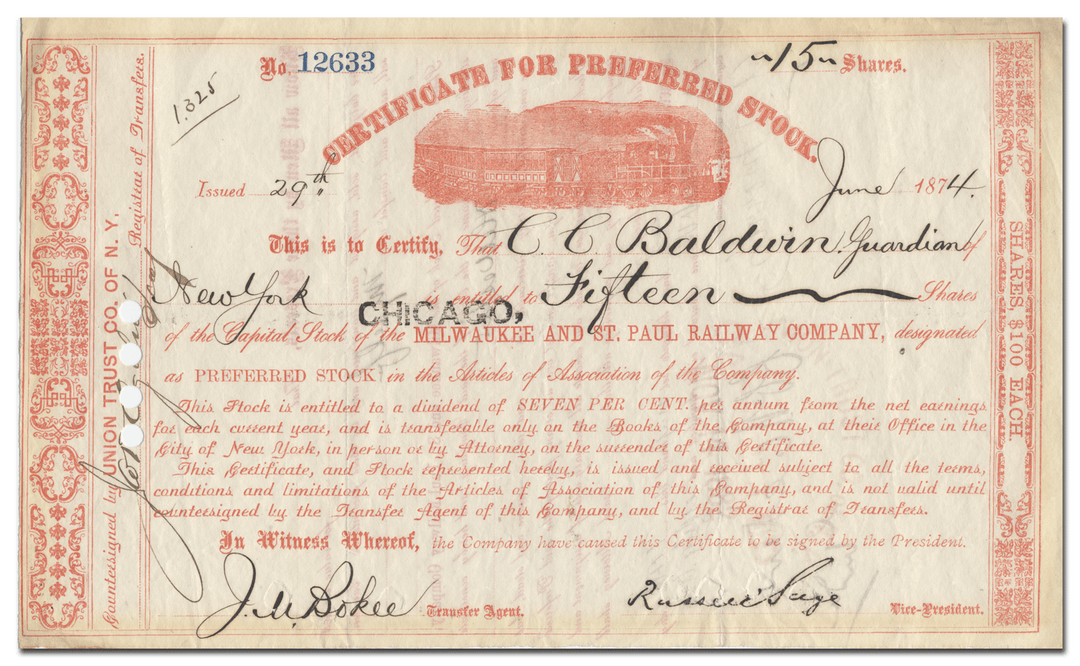 No 12633
"15" Shares.
CERTIFICATE FOR PREFERRED STOCK.
1325
Issued 29th June 1874.
This is to Certify, That C. C. Baldwin, Guardian of
New York is entitled to Fifteen Shares
CHICAGO,
of the Capital Stock of the MILWAUKEE AND ST. PAUL RAILWAY COMPANY, designated
as PREFERRED STOCK in the Articles of Association of the Company.
This Stock is entitled to a dividend of SEVEN PER CENT. per annum from the net earnings
for each current year, and is transferable only on the Books of the Company, at their Office in the
City of New York, in person or by Attorney, on the surrender of this Certificate.
This Certificate, and Stock represented hereby, is issued and received subject to all the terms,
conditions and limitations of the Articles of Association of this Company, and is not valid until
countersigned by the Transfer Agent of this Company, and by the Registrar of Transfers.
In Witness Whereof, the Company have caused this Certificate to be signed by the President.
J. M. Bokee Transfer Agent.
Russell Sage Vice-President.
Countersigned by UNION TRUST CO. OF N. Y.
Registrar of Transfers.
SHARES, $100 EACH.